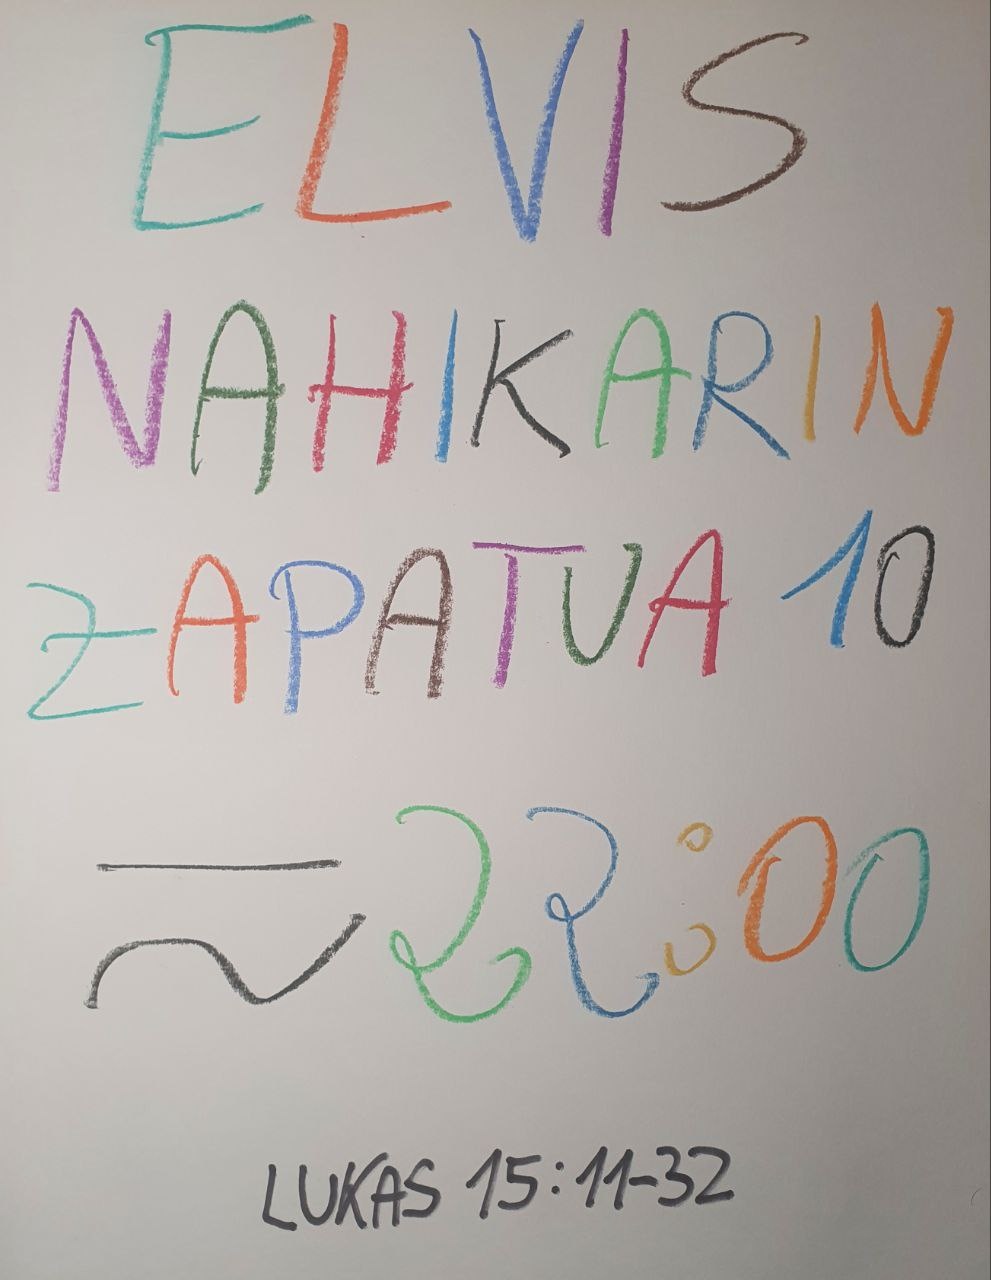 ELVIS
NAHIKARIN
ZAPATUA 10
≂ 22:00
LUKAS 15:11-32